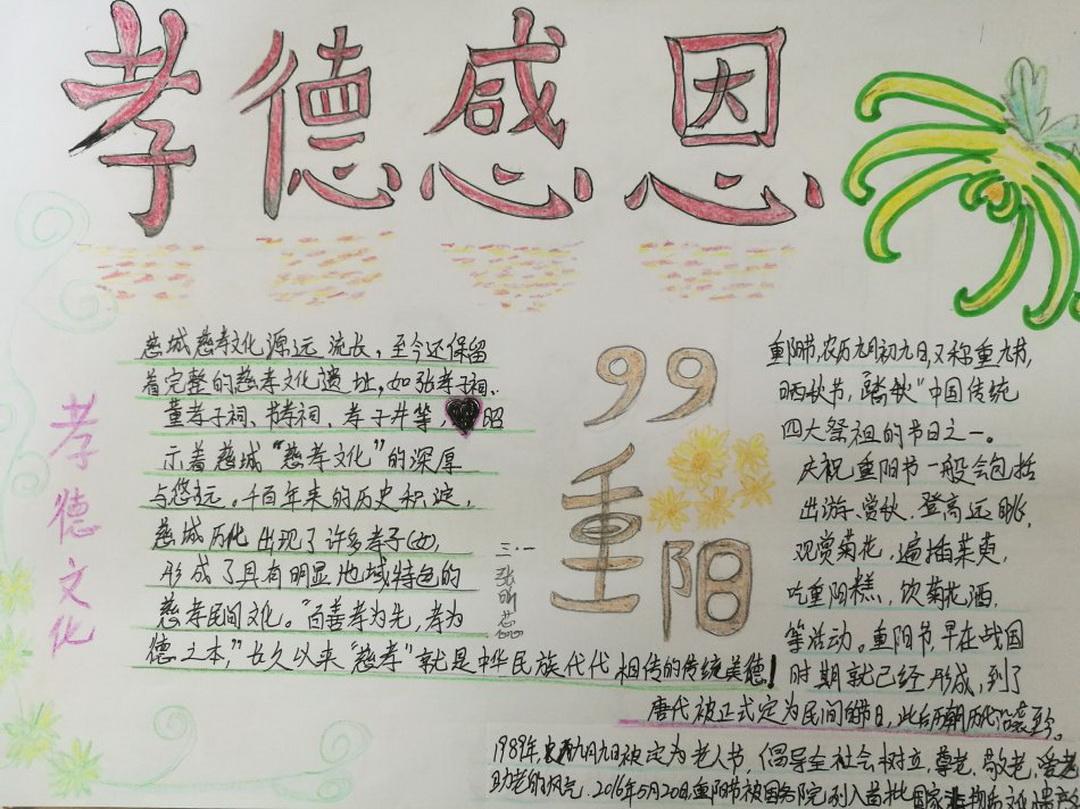 孝德感恩
孝德文化
慈城慈孝文化源远流长，至今还保留
着完整的慈孝文化遗址，如张孝子祠、
董孝子祠、孝祠、孝子井等，昭
示着慈城“慈孝文化”的深厚
与悠远。千百年来的历史积淀，
慈城历代出现了许多孝子(女)，
形成了具有明显地域特色的
慈孝民间文化。“百善孝为先，孝为
德之本，”长久以来“慈孝”就是中华民族代代相传的传统美德！
三·一
张
99
重阳
重阳节，农历九月初九日，又称重九节，
晒秋节，“踏秋”中国传统
四大祭祖的节日之一。
庆祝重阳节一般会包括
出游、赏秋、登高远眺，
观赏菊花，遍插茱萸，
吃重阳糕，饮菊花酒，
等活动。重阳节，早在战国
时期就已经形成，到了
唐代被正式定为民间的节日，此后历朝历代沿袭至今。
1989年，农历九月九日被定为老人节，倡导全社会树立，尊老、敬老、爱老
助老的风气。2016年5月20日，重阳节被国务院列入首批国家非物质遗产